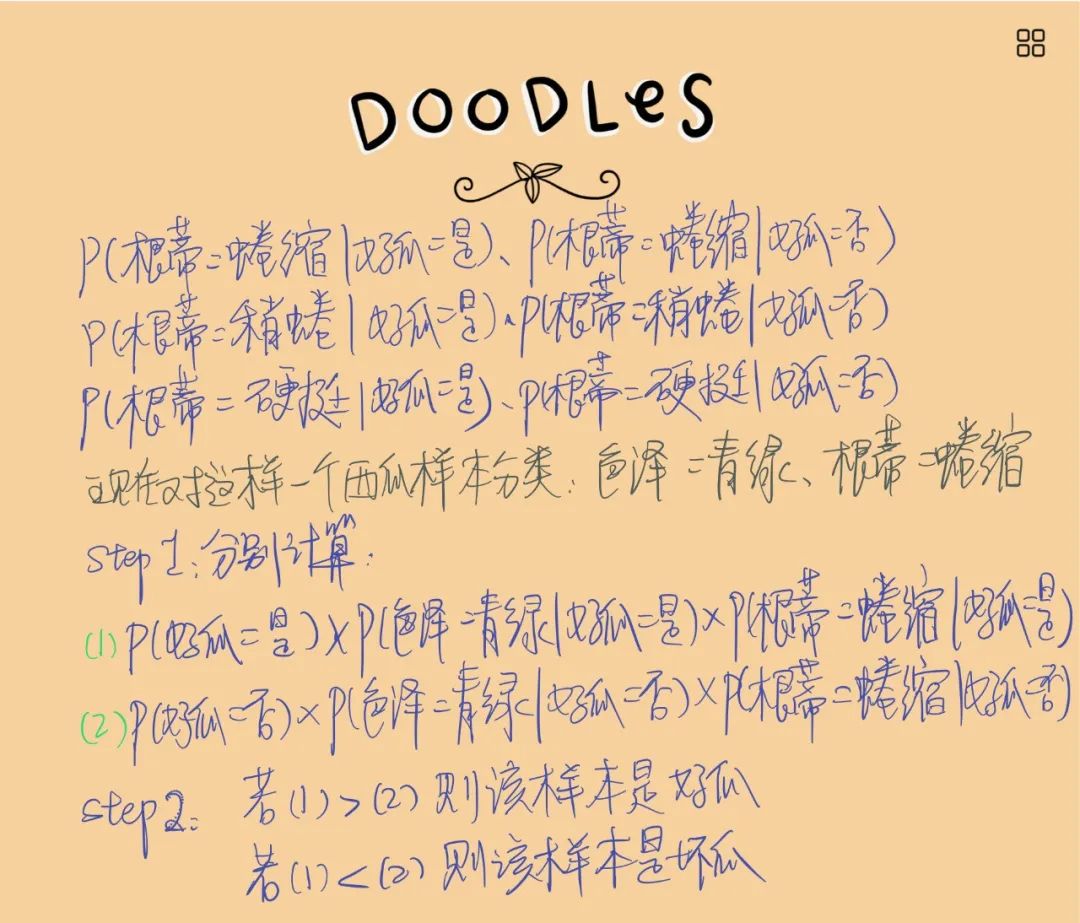 DOODLES
P(根蒂=蜷缩|好瓜=是)、P(根蒂=蜷缩|好瓜=否)
P(根蒂=稍蜷|好瓜=是)、P(根蒂=稍蜷|好瓜=否)
P(根蒂=硬挺|好瓜=是)、P(根蒂=硬挺|好瓜=否)
现在对这样一个西瓜样本分类:色泽=青绿、根蒂=蜷缩
step1:分别计算:
(1)P(好瓜=是)×P(色泽=青绿|好瓜=是)×P(根蒂=蜷缩|好瓜=是)
(2)P(好瓜=否)×P(色泽=青绿|好瓜=否)×P(根蒂=蜷缩|好瓜=否)
step2: 若(1)>(2)则该样本是好瓜
若(1)<(2)则该样本是坏瓜